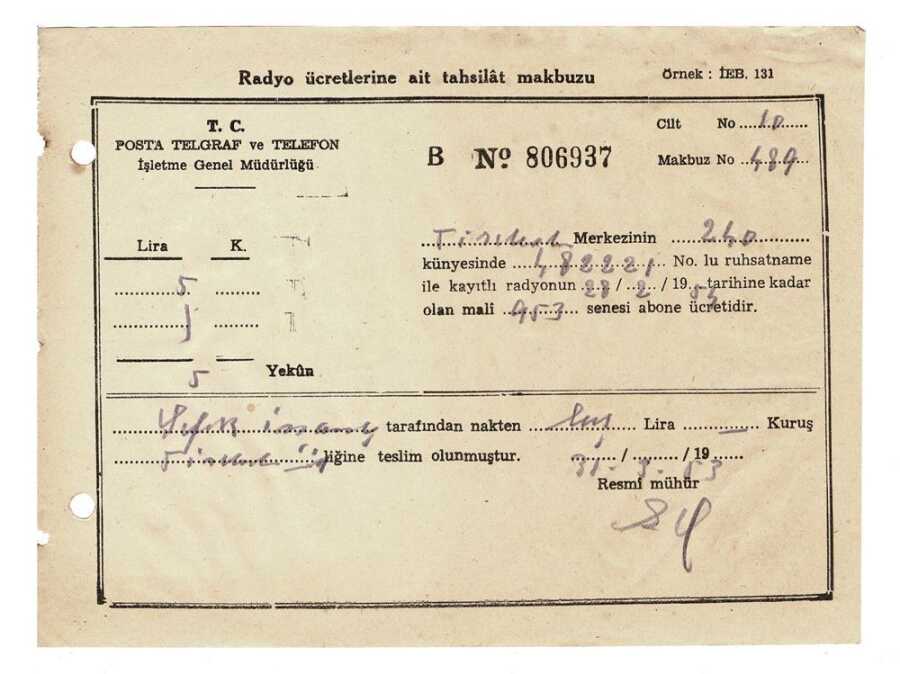 Radyo ücretlerine ait tahsilât makbuzu
Örnek : İEB. 131
T. C.
POSTA TELGRAF ve TELEFON
İşletme Genel Müdürlüğü
B No 806937
Cilt No 10
Makbuz No 489
Lira K.
5
5 Yekûn
Merkezinin 240
künyesinde 482221 No. lu ruhsatname
ile kayıtlı radyonun 28 / 2 / 19 54 tarihine kadar
olan malî 953 senesi abone ücretidir.
tarafından nakten beş Lira — Kuruş
liğine teslim olunmuştur. 31 / 3 / 19 53
Resmî mühür